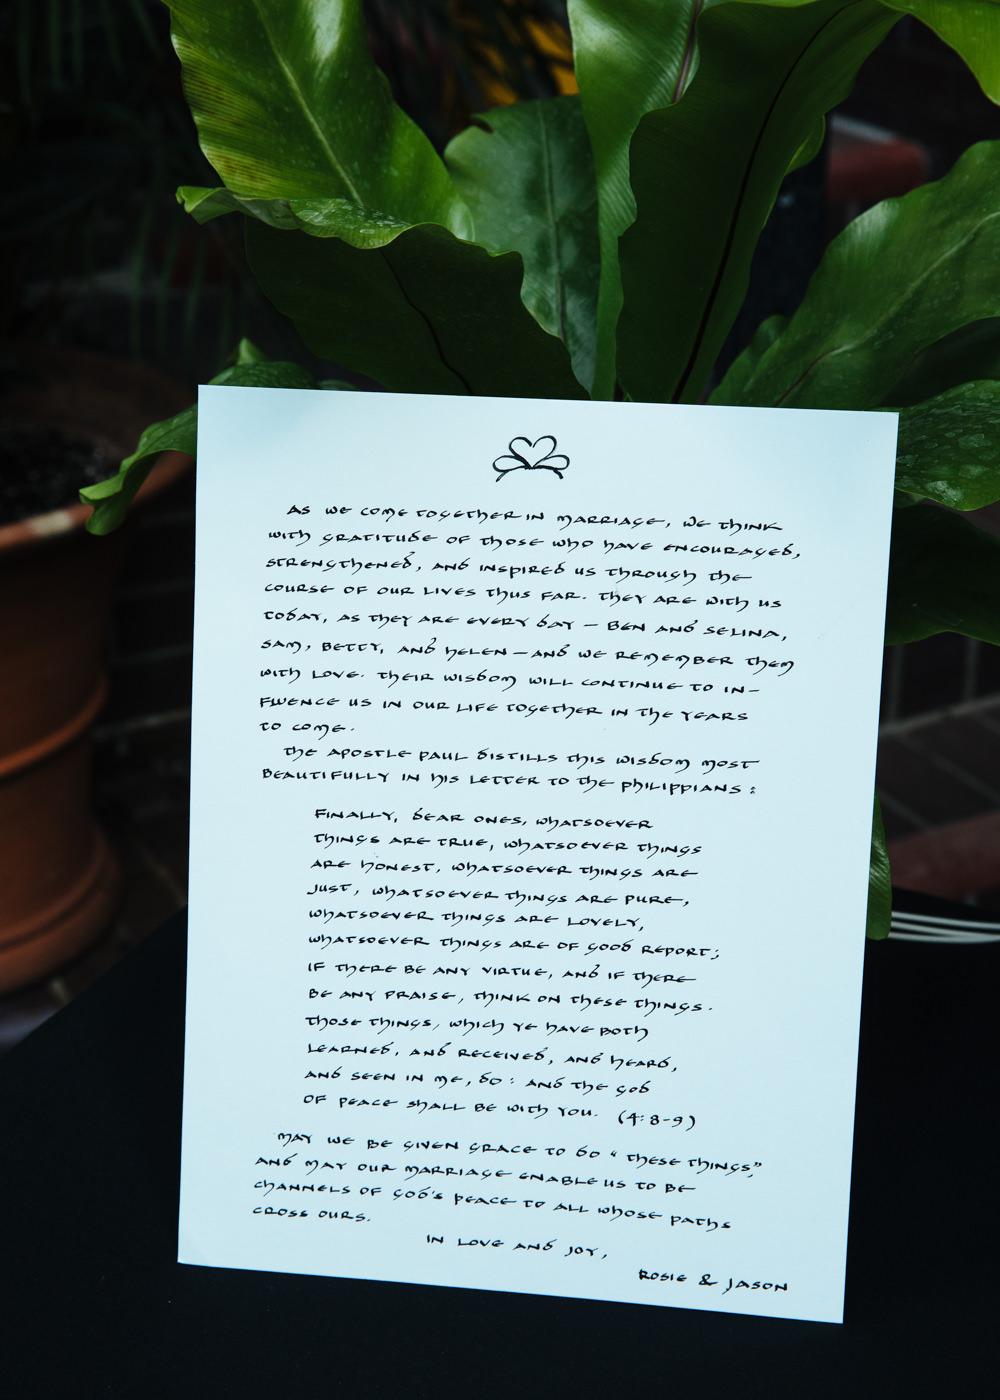 As we come together in marriage, we think
with gratitude of those who have encouraged,
strengthened, and inspired us through the
course of our lives thus far. They are with us
today, as they are every day — Ben and Selina,
Sam, Betty, and Helen — and we remember them
with love. Their wisdom will continue to in-
fluence us in our life together in the years
to come.
The Apostle Paul distills this wisdom most
beautifully in his letter to the Philippians:
Finally, dear ones, whatsoever
things are true, whatsoever things
are honest, whatsoever things are
just, whatsoever things are pure,
whatsoever things are lovely,
whatsoever things are of good report;
if there be any virtue, and if there
be any praise, think on these things.
Those things, which ye have both
learned, and received, and heard,
and seen in me, do: and the God
of peace shall be with you. (4:8-9)
May we be given grace to do "these things",
and may our marriage enable us to be
channels of God's peace to all whose paths
cross ours.
In love and joy,
Rosie & Jason